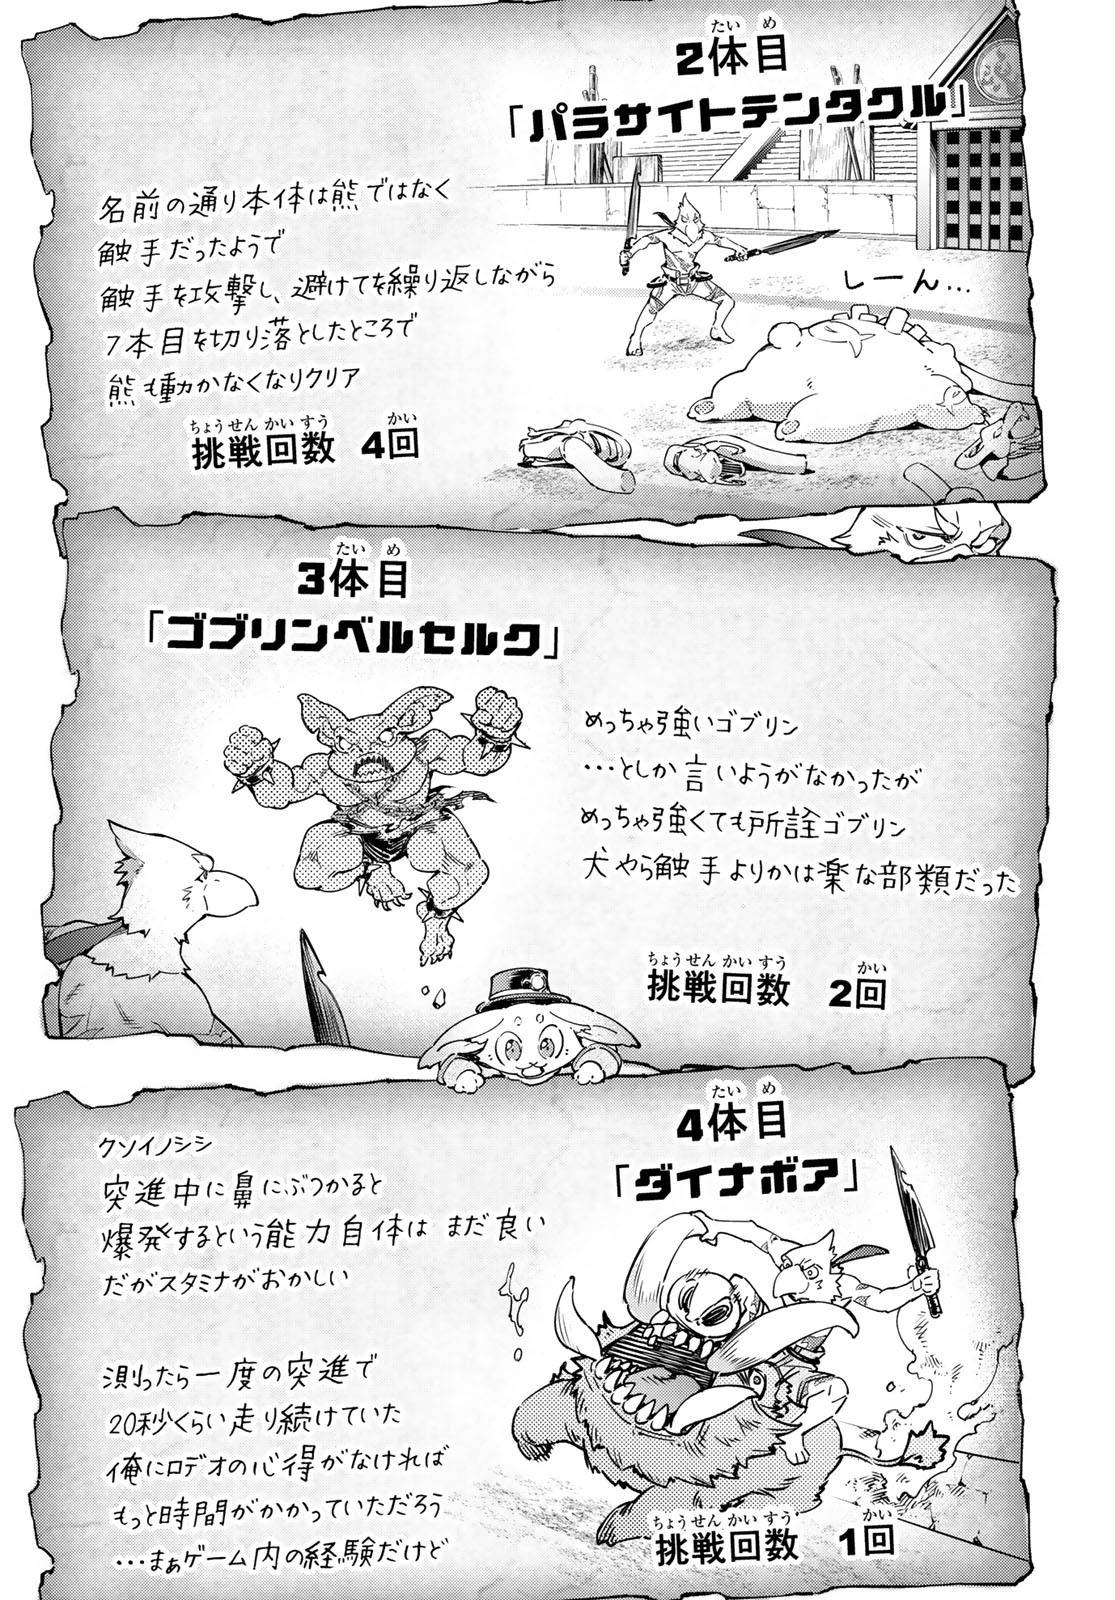 2体目
「パラサイトテンタクル」
名前の通り本体は熊ではなく
触手だったようで
触手を攻撃し、避けてを繰り返しながら
7本目を切り落としたところで
熊も動かなくなりクリア
挑戦回数 4回
しーん…
3体目
「ゴブリンベルセルク」
めっちゃ強いゴブリン
…としか言いようがなかったが
めっちゃ強くても所詮ゴブリン
犬やら触手よりかは楽な部類だった
挑戦回数 2回
4体目
「ダイナボア」
クソイノシシ
突進中に鼻にぶつかると
爆発するという能力自体はまだ良い
だがスタミナがおかしい
測ったら一度の突進で
20秒くらい走り続けていた
俺にロデオの心得がなければ
もっと時間がかかっていただろう
…まぁゲーム内の経験だけど
挑戦回数 1回